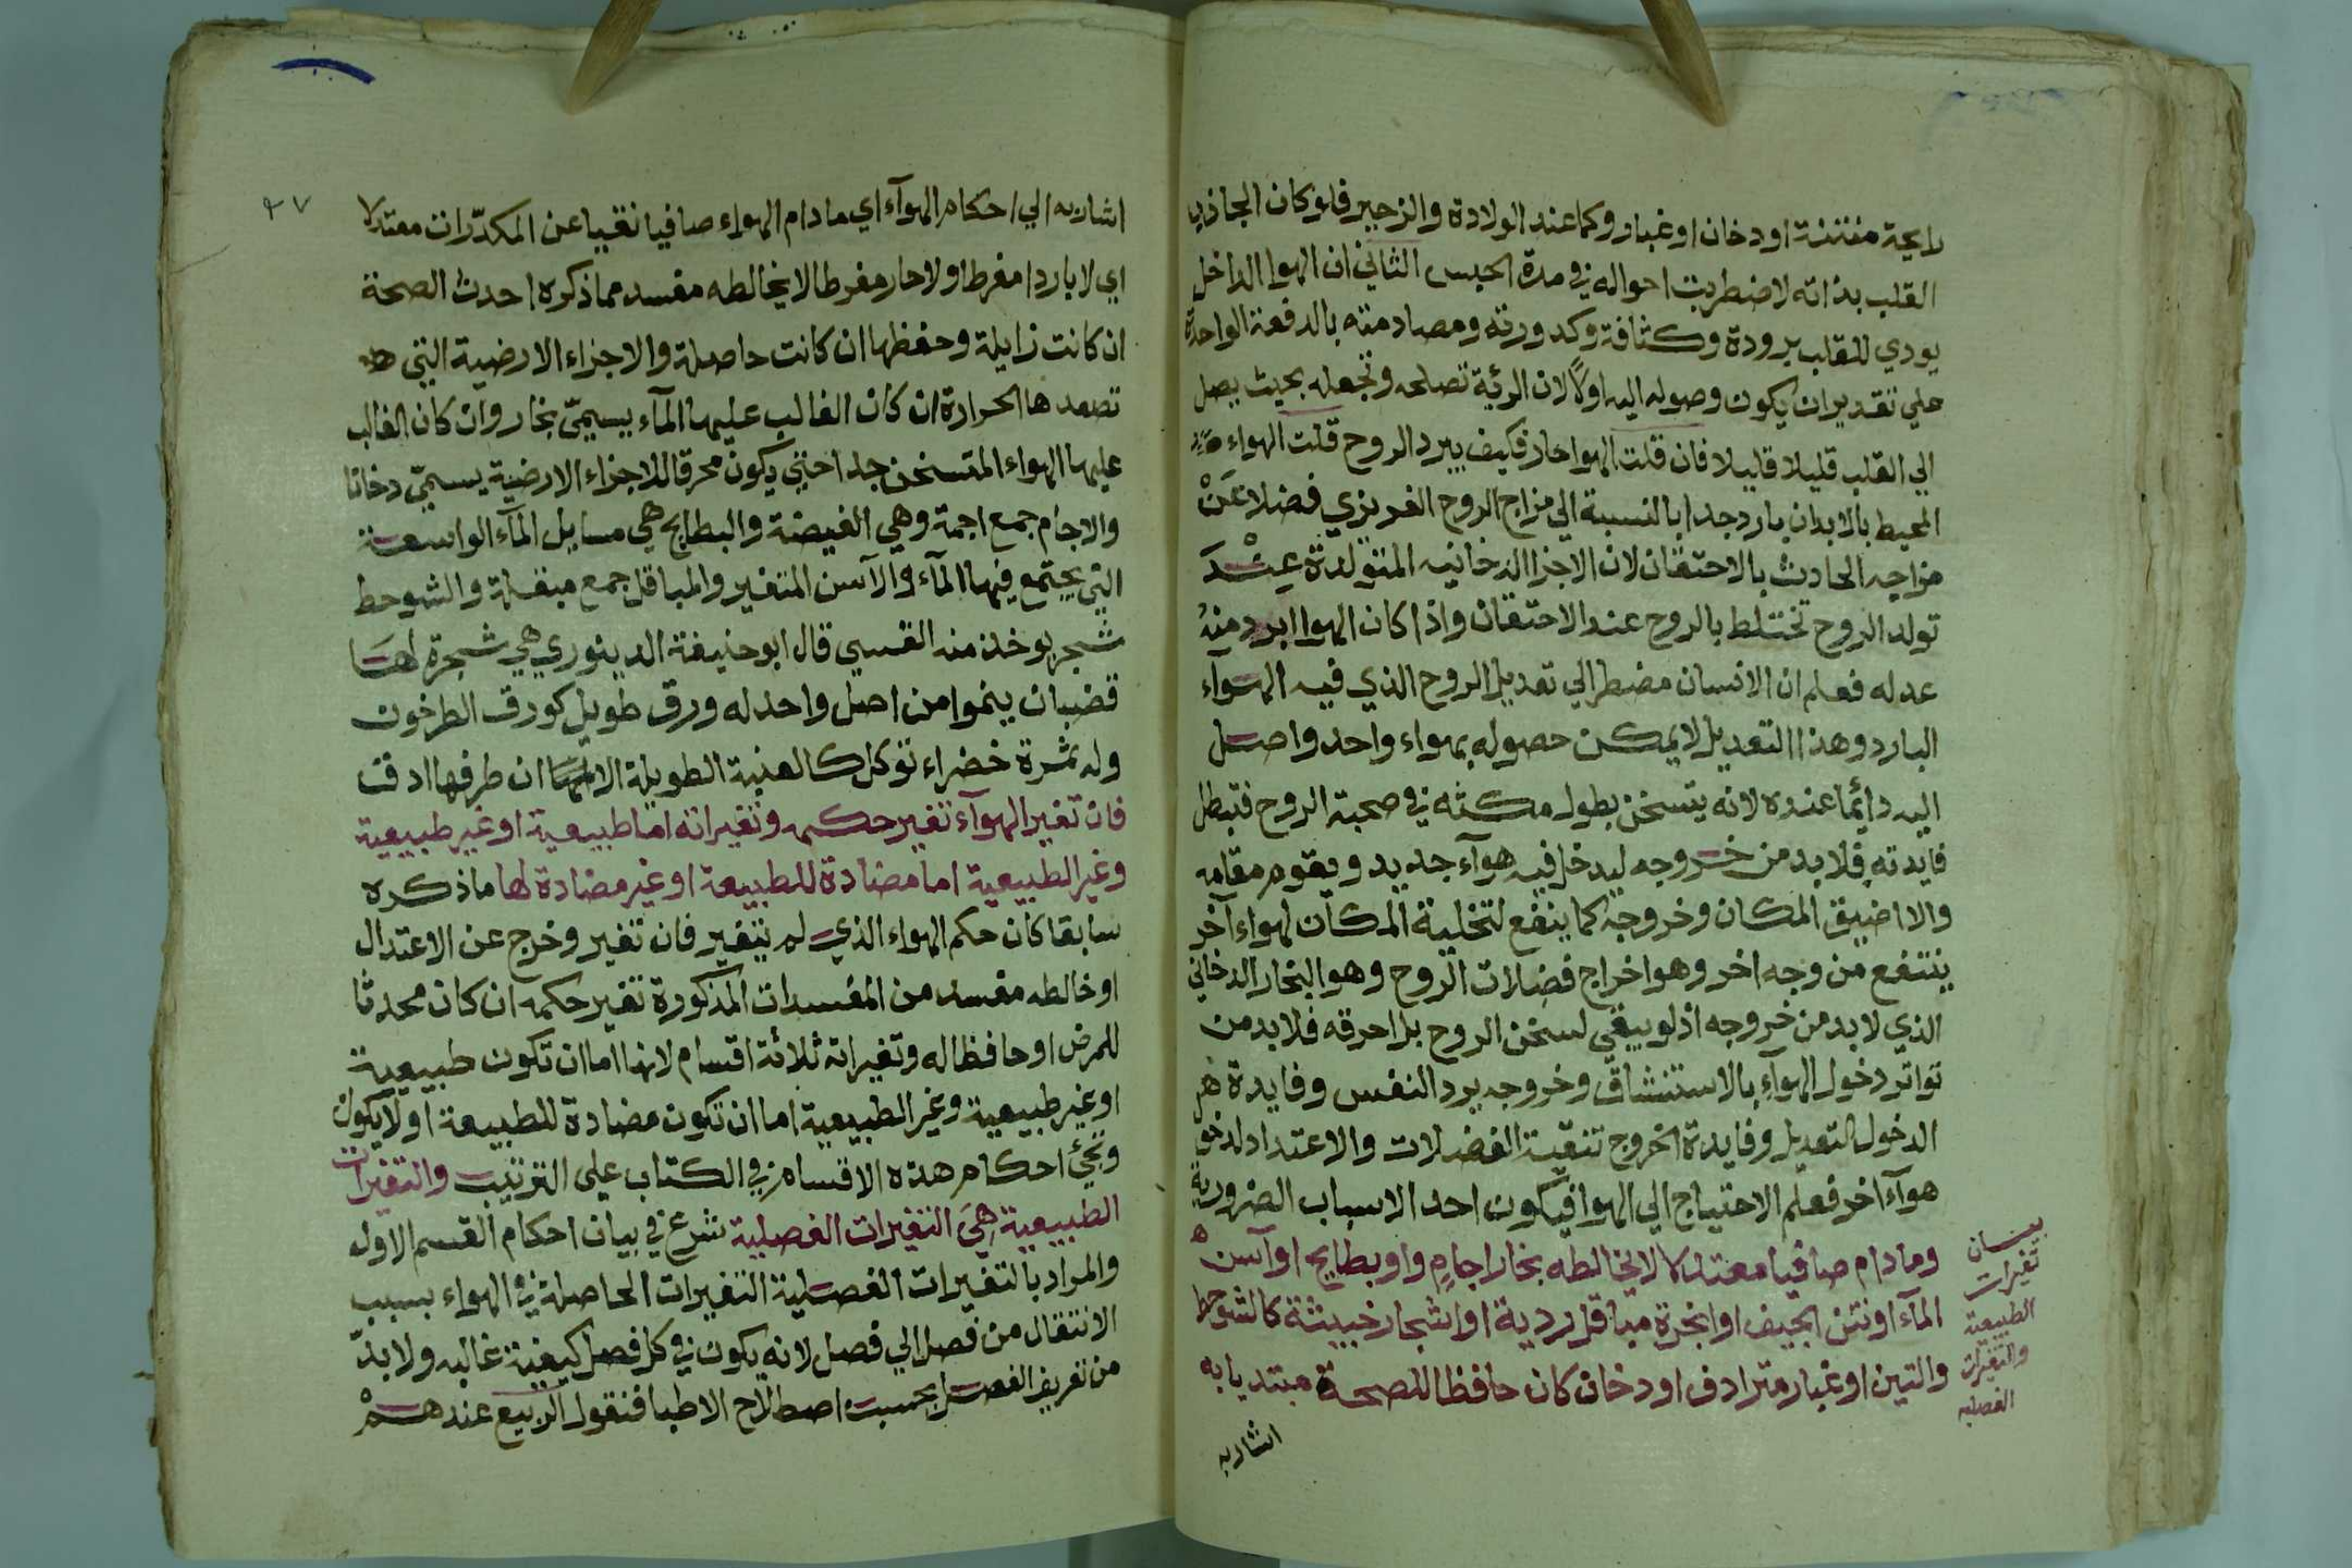 رايحة منتنة او دخان او غبار وكما عند الولادة والزحير فلو كان الجاذب
القلب بذاته لاضطربت احواله في مدة الحبس الثاني ان الهوا الداخل
يودي للقلب برودة وكثافة وكدورته ومصادمته بالدفعة الواحدة
علي تقدير ان يكون وصوله اليه اولا لان الرئة تصلحه وتجعله بحيث يصل
الي القلب قليلا قليلا فان قلت الهوا حار فكيف يبرد الروح قلت الهواء
المحيط بالابدان بارد جدا بالنسبة الي مزاج الروح الغريزي فضلا عَنْ
مزاجه الحادث بالاحتقان لان الاجزا الدخانيه المتولدة عِنْدَ
تولد الروح تختلط بالروح عند الاحتقان واذا كان الهوا ابرد منهُ
عدله فعلم ان الانسان مضطر الي تعديل الروح الذي فيه الهوآء
البارد وهذا التعديل لا يمكن حصوله بهواء واحد واصل
اليه دائما عنده لانه يتسخن بطول مكثه في صحبة الروح فتبطل
فايدته فلا بد من خروجه ليدخل فيه هوآء جديد ويقوم مقامه
والا اضيق المكان وخروجه كما ينفع لتخلية المكان لهواء آخر
ينتفع من وجه اخر وهو اخراج فضلات الروح وهو البخار الدخاني
الذي لا بد من خروجه اذ لو يبقي لسخن الروح بل احرقه فلا بد من
تواتر دخول الهوآء بالاستنشاق وخروجه برد النفس وفايدة
الدخول التعديل وفايدة الخروج تنقية الفضلات والاعتداد لدخول
هوآء اخر فعلم الاحتياج الي الهوا فيكون احد الاسباب الضرورية
وما دام صافيا معتدلا لا يخالطه بخار اجامٍ واو بطايح او آسن
المآء او نتن الجيف او ابخرة مباقل ردية او اشجار خبيثة كالشوحط
والتين او غبار مترادف او دخان كان حافظا للصحة مبتديا به
اشار به
بيان
تغيرات
الطبيعية
والتغيرات
الفصليه
٩٧
اشار به الي احكام الهوآء اي ما دام الهواء صافيا نقيا عن المكدّرات معتدلا
اي لا باردا مفرطا ولا حار مفرطا لا يخالطه مفسد مما ذكره احدث الصحة
ان كانت زايلة وحفظها ان كانت حاصلة والاجزاء الارضية التي
تصعدها الحرارة ان كان الغالب عليها المآء يسمّي بخار وان كان الغالب
عليها الهواء المتسخن جدا حتي يكون محرقا للاجزاء الارضية يسمّي دخانا
والاجام جمع اجمة وهي الغيضة والبطايح هي مسايل المآء الواسعة
التي يجتمع فيها المآء والآسن المتغير والمباقل جمع مبقلة والشوحط
شجر يوخذ منه القسي قال ابو حنيفة الدينوري هي شجرة لها
قضبان ينموا من اصل واحد له ورق طويل كورق الطرخون
وله ثمرة خضراء توكل كالعنبة الطويلة الا ان طرفها ادق
فان تغير الهوآء تغير حكمه وتغيراته اما طبيعية او غير طبيعية
وغير الطبيعية اما مضادة للطبيعة او غير مضادة لها ما ذكره
سابقا كان حكم الهواء الذي لم يتغير فان تغير وخرج عن الاعتدال
او خالطه مفسد من المفسدات المذكورة تغير حكمه ان كان محدثا
للمرض او حافظا له وتغيراته ثلاثة اقسام لانها اما ان تكون طبيعية
او غير طبيعية وغير الطبيعية اما ان تكون مضادة للطبيعة او لا يكون
ونجئ احكام هذه الاقسام في الكتاب علي الترتيب والتغيرات
الطبيعية هِيَ التغيرات الفصلية شرع في بيان احكام القسم الاول
والمراد بالتغيرات الفصلية التغيرات الحاصلة في الهواء بسبب
الانتقال من فصل الي فصل لانه يكون في كل فصل كيفية غالبه ولا بدّ
من تعريف الفصل بحسب اصطلاح الاطبا فنقول الربيع عندهمْ